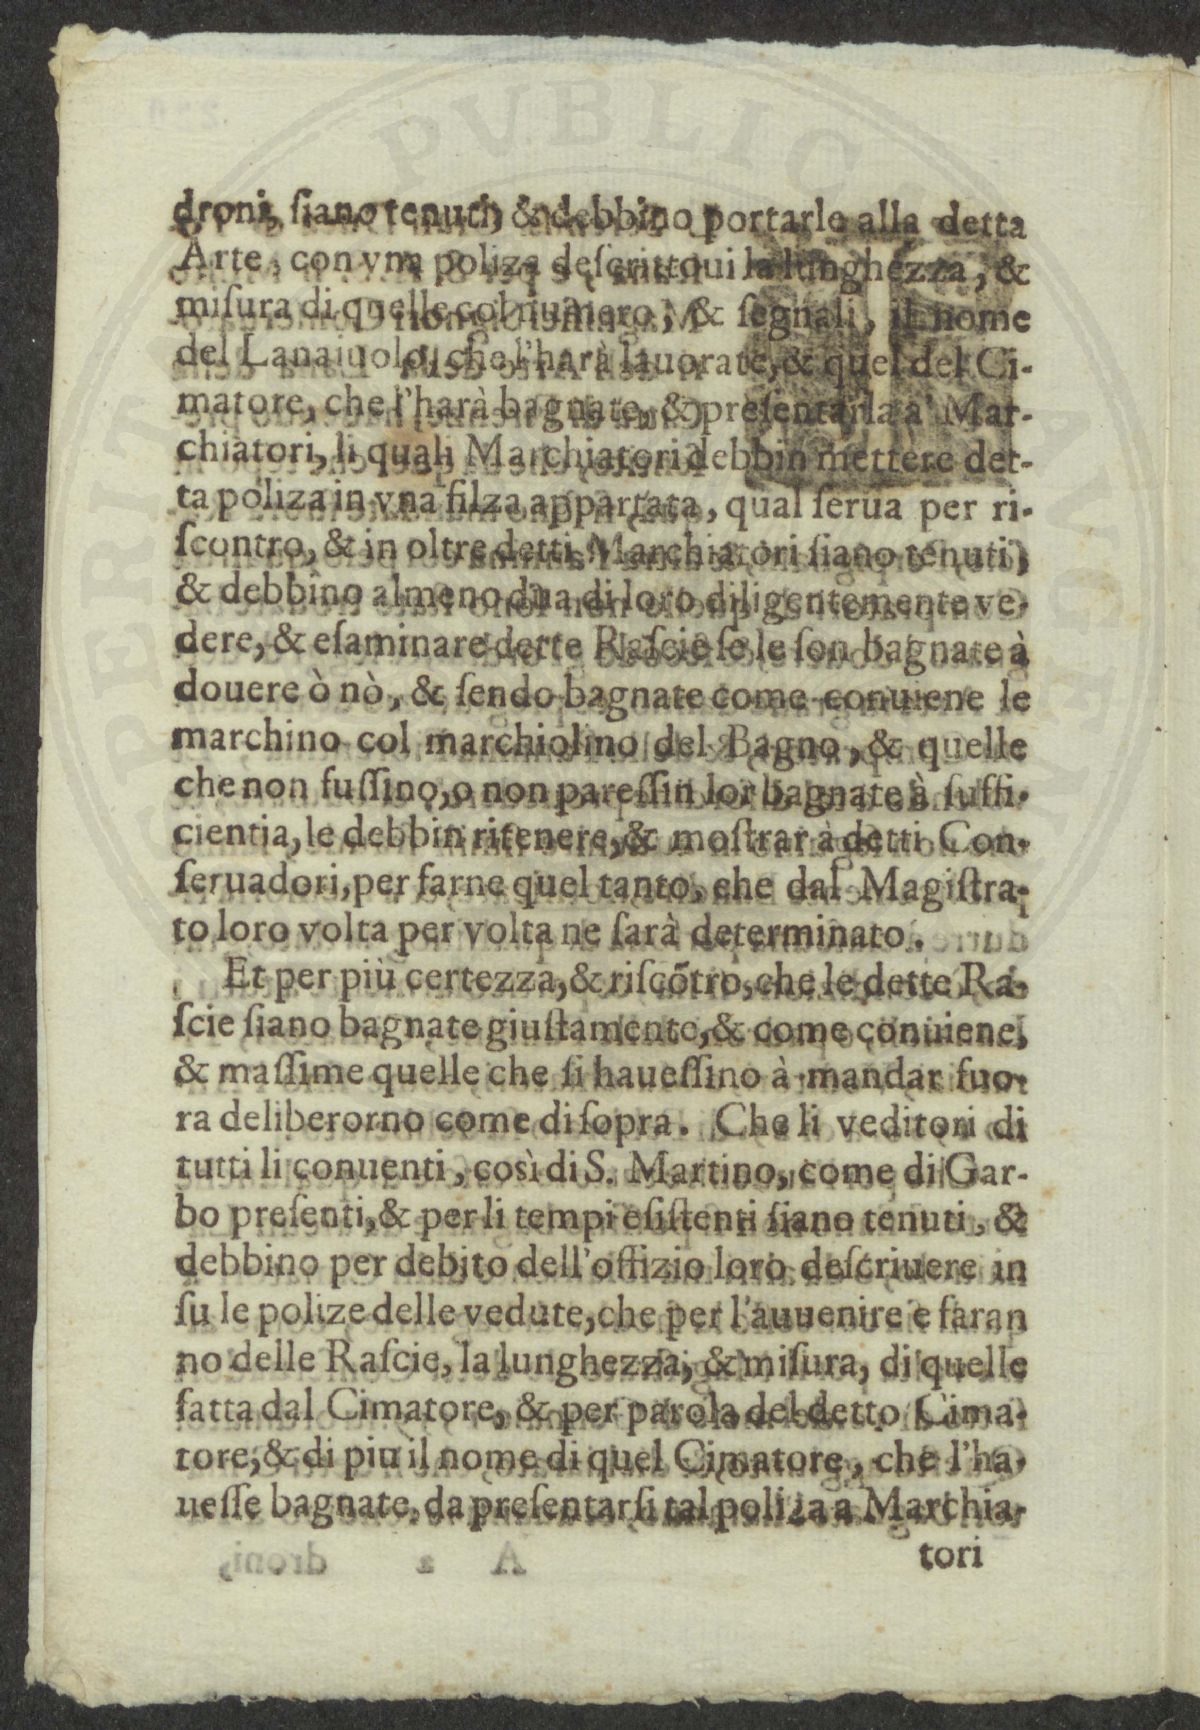 droni, ſiano tenuti, & debbino portarle alla detta
Arte, con vna poliza deſcrittoui la lunghezza, &
miſura di quelle col numero, & ſegnali, il nome
del Lanaiuolo, che l'harà lauorate, & quel del Ci-
matore, che l'harà bagnate, & preſentarla a' Mar-
chiatori, li quali Marchiatori debbin mettere det-
ta poliza in vna filza appartata, qual ſerua per ri-
ſcontro, & in oltre detti Marchiatori ſiano tenuti,
& debbino almeno dua di loro diligentemente ve-
dere, & eſaminare dette Raſcie ſe le ſon bagnate à
douere ò nò, & ſendo bagnate come conuiene le
marchino col marchiolino del Bagno, & quelle
che non fuſſino, o non pareſſin lor bagnate à ſuffi-
cientia, le debbin ritenere, & moſtrar à detti Con-
ſeruadori, per farne quel tanto, che dal Magiſtra-
to loro volta per volta ne ſarà determinato.
Et per più certezza, & riſcõtro, che le dette Ra-
ſcie ſiano bagnate giuſtamente, & come conuiene,
& maſſime quelle che ſi haueſſino à mandar fuo-
ra deliberorno come di ſopra. Che li veditori di
tutti li conuenti, così di S. Martino, come di Gar-
bo preſenti, & per li tempi eſiſtenti ſiano tenuti, &
debbino per debito dell'offizio loro deſcriuere in
ſu le polize delle vedute, che per l'auuenire e faran
no delle Raſcie, la lunghezza, & miſura, di quelle
fatta dal Cimatore, & per parola del detto Cima-
tore, & di piu il nome di quel Cimatore, che l'ha-
ueſſe bagnate, da preſentarſi tal poliza a Marchia-
tori